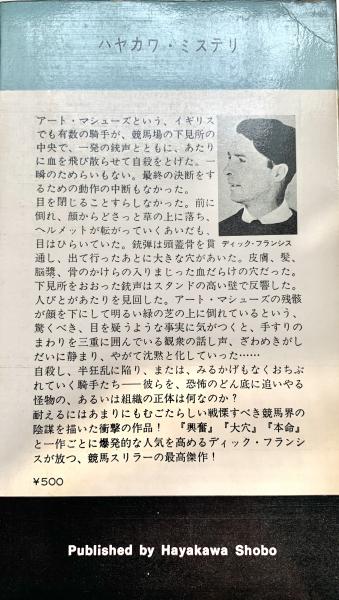 ハヤカワ・ミステリ
アート・マシューズという、イギリス
でも有数の騎手が、競馬場の下見所の
中央で、一発の銃声とともに、あたり
に血を飛び散らせて自殺をとげた。一
瞬のためらいもない。最終の決断をす
るための動作の中断もなかった。
目を閉じることすらしなかった。前に
倒れ、顔からどさっと草の上に落ち、
ヘルメットが転がっていくあいだも、
目はひらいていた。銃弾は頭蓋骨を貫
通し、出て行ったあとに大きな穴があいた。皮膚、髪、
脳漿、骨のかけらの入りまじった血だらけの穴だった。
下見所をおおった銃声はスタンドの高い壁で反響した。
人びとがあたりを見回した。アート・マシューズの残骸
が顔を下にして明るい緑の芝の上に倒れているという、
驚くべき、目を疑うような事実に気がつくと、手すりの
まわりを三重に囲んでいる観衆の話し声、ざわめきがし
だいに静まり、やがて沈黙と化していった……
自殺し、半狂乱に陥り、または、みるかげもなくおちぶ
れていく騎手たち――彼らを、恐怖のどん底に追いやる
怪物の、あるいは組織の正体は何なのか？
耐えるにはあまりにもむごたらしい戦慄すべき競馬界の
陰謀を描いた衝撃の作品！　『興奮』『大穴』『本命』
と一作ごとに爆発的な人気を高めるディック・フランシ
スが放つ、競馬スリラーの最高傑作！
ディック・フランシス
¥500
Published by Hayakawa Shobo